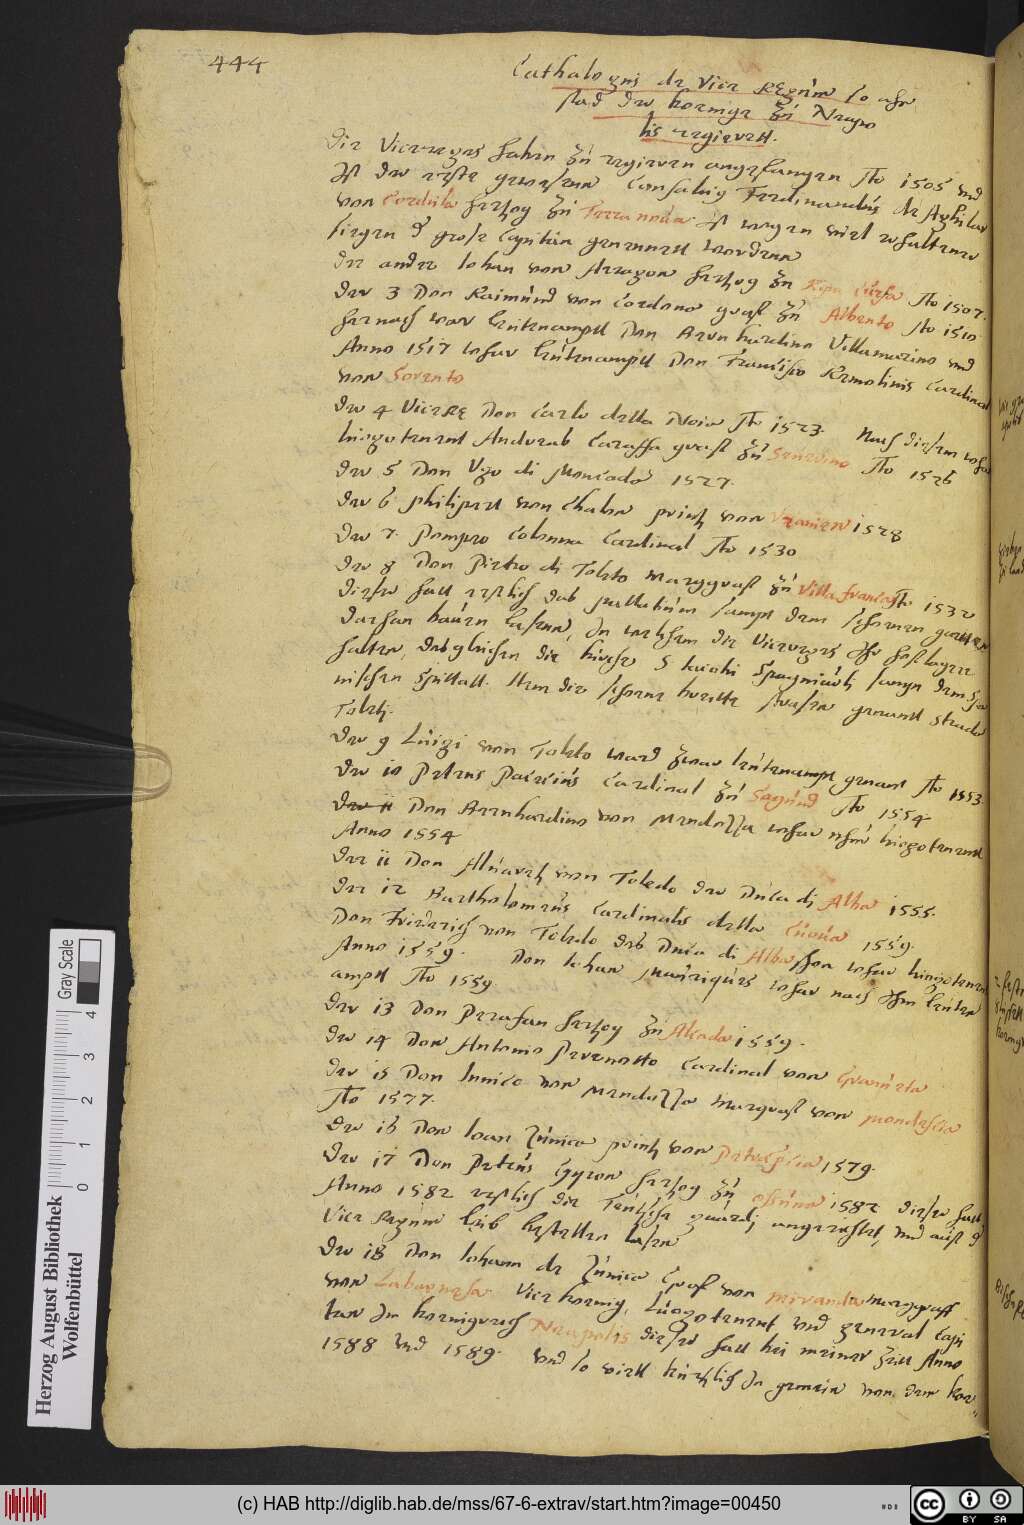 444
Cathalogus der Vice Regum so ahn
stad der koenige zu Neapo
lis regiertt.
Die Viceregges haben zu regieren angefangen Ao 1505 und
Ist der erste gewesenn Consalvus Ferdinandus de Aghilar
von Corduba hertzog zu Terranova Ist wegen viel erhaltener
siegen d' große Capitan genennett wordenn
Der ander Johan von Arragon hertzog zu Ripa Curtza Ao 1507.
Der 3 Don Raimund von Cordona graff zu Albento Ao 1510
hernach war leutenampt Don Bernhardino Villamarino und
Anno 1517 wahr leutenampt Don Francisco Remolinis Cardinal
von Sorento
Der 4 ViceRe Don Carlo della Noia Ao 1523. Nach diesem wahr
luogotenent Andreas Caraffa graff zu Severino Ao 1526
Der 5 Don Ugo di Moncado 1527.
Der 6 philipert von Chalon prinz von Uranien 1528
Der 7. Pompeo Colonna Cardinal Ao 1530
Der 8 Don Pietro di Toleto Marggraff zu Villa franca Ao 1532
Dieser hatt erstlich das pallatium sampt dem schonen gartten
daran bauen lasenn, In welchem die Viceregges Ihr hofflager
halten, desgleichen die kirche S Iacobi Spagniauli sampt dem Spa
nischen Spittall. Item die schone breitte strasen genandt strada
Toletj.
Der 9 Luigi von Toleto ward zwar leutenampt genant Ao 1553.
Der 10 Petrus Paceccius Cardinal zu Sagund Ao 1554
Der 11 Don Bernhardino von Mendozza wahr nhun luogotenent
Anno 1554
Der 11 Don Alvarez von Toledo der Duca di Alba 1555.
Der 12 Bartholomeus Cardinalis della Cueva 1559.
Don Friderich von Toledo des Duca di Alba sohn wahr luogotenent
Anno 1559. Don Iohan Manriques wahr nach Ihm leuten
ampt Ao 1559
Der 13 Don Perafan hertzog zu Alcada 1559.
Der 14 Don Antonio Perenotto Cardinal von Granvela
Der 15 Don Innico von Mendozza Margraff von mondescia
Ao 1577.
Der 16 Don Ioan Zunica prinz von Petraepscia 1579.
Der 17 Don Petrus Gyron hertzog zu ossuna 1582 dieser hatt
Anno 1582 erstlich die Teutsche guardj angerichtet, und auff d'
Vice Regum leib bestellen lasen
Der 18 Don Iohann de Zunica Graff von miranda marggraff
von Labagnesa Vice koenig, Luogotenent und general Capi
tan Im koenigreich Neapolis dieser hatt bei meiner Zeitt Anno
1588 und 1589. und so viell kurtzlich In gemein von dem koe=
Herzog August Bibliothek
Wolfenbüttel
Gray Scale
0 1 2 3 4
(c) HAB http://diglib.hab.de/mss/67-6-extrav/start.htm?image=00450
cc BY SA